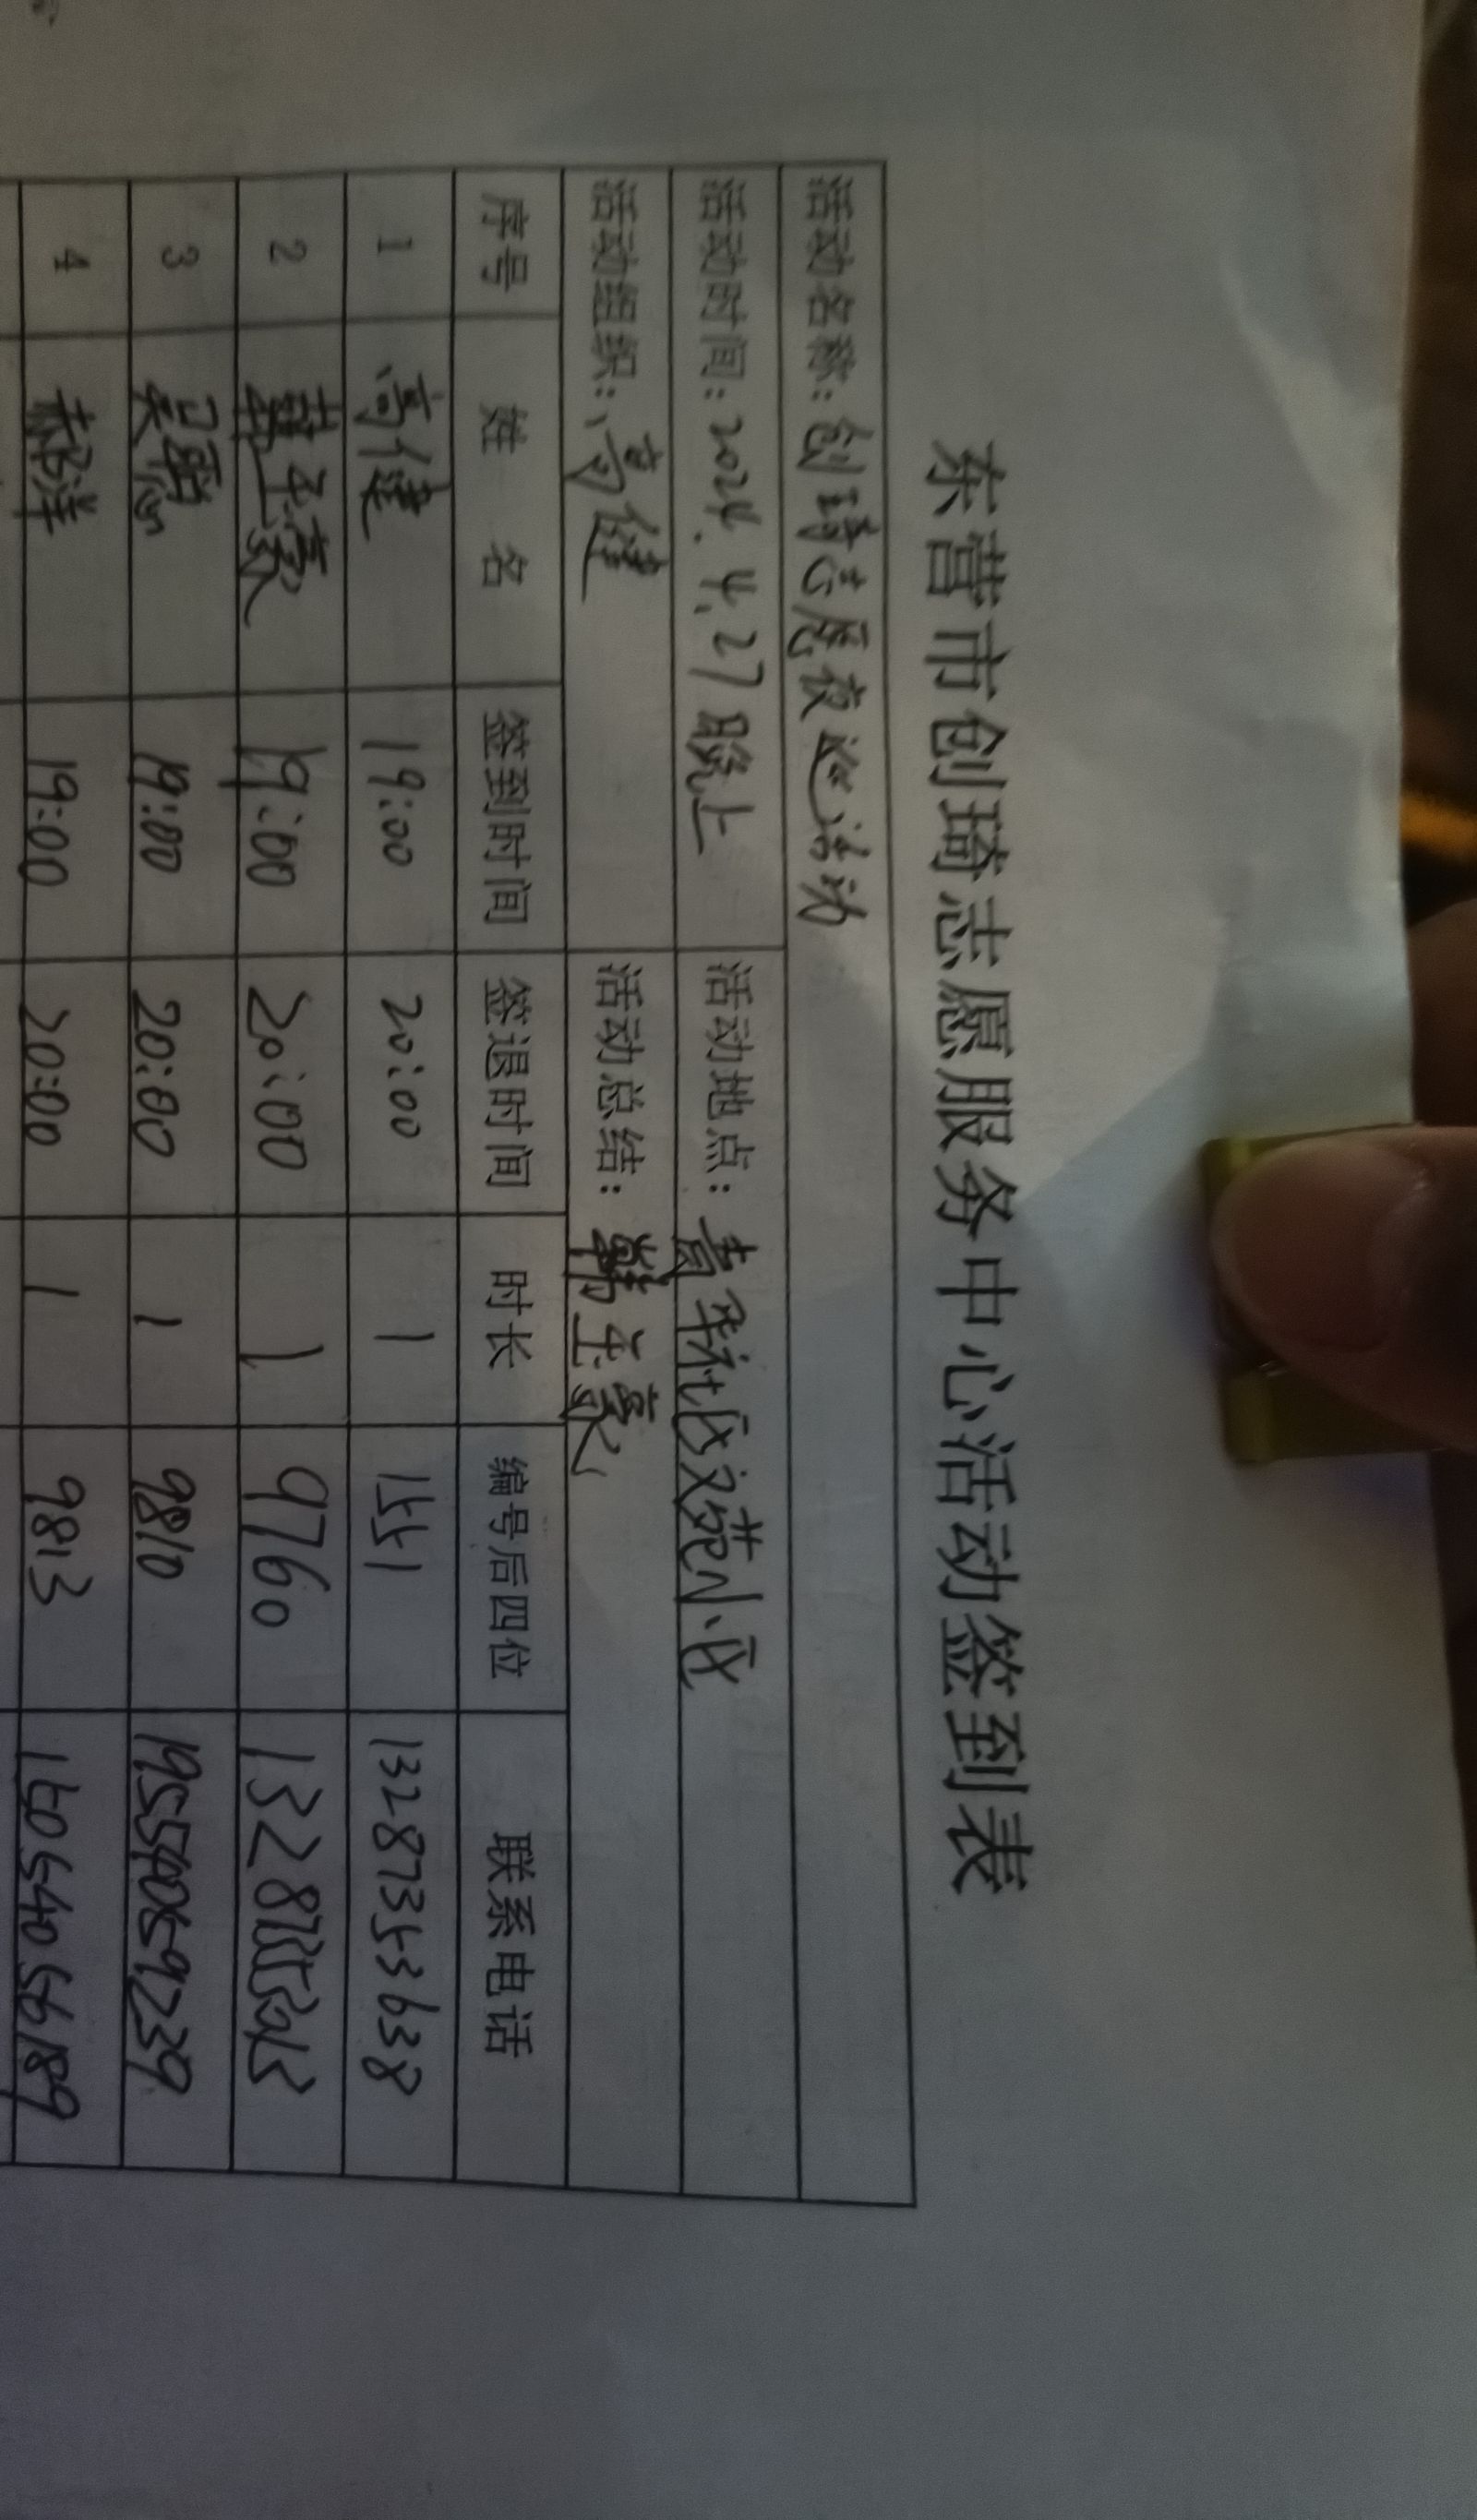 东营市创琦志愿服务中心活动签到表
活动名称：创琦志愿夜巡活动
活动时间：2024.4.27晚上 活动地点：青年社区文苑小区
活动组织：高健 活动总结：韩玉豪
序号 姓名 签到时间 签退时间 时长 编号后四位 联系电话
1 高健 19:00 20:00 1 1551 13287353638
2 韩玉豪 19:00 20:00 1 9760
3 19:00 20:00 1 9810 19554069239
4 郝洋 19:00 20:00 1 9813